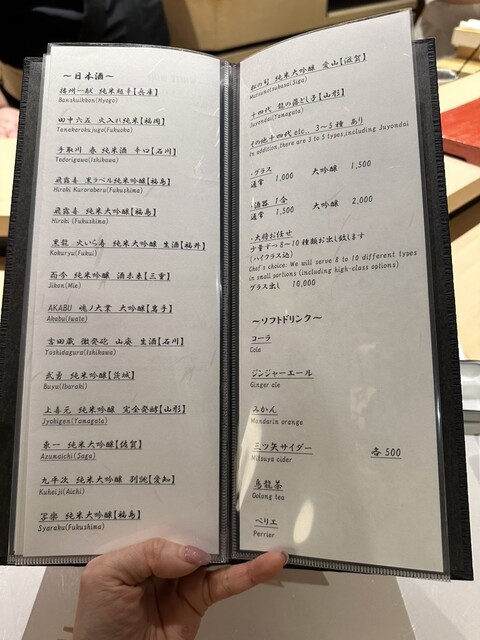 ～日本酒～
播州一献 純米超辛【兵庫】
Banshuikkon(Hyogo)
田中六五 火入れ純米【福岡】
Tanakarokujugo(Fukuoka)
手取川 春 純米酒 辛口【石川】
Tedorigawa(Ishikawa)
飛露喜 黒ラベル純米吟醸【福島】
Hiroki Kuroraberu(Fukushima)
飛露喜 純米大吟醸【福島】
Hiroki (Fukushima)
黒龍 火いら寿 純米大吟醸 生酒【福井】
Kokuryu(Fukui)
而今 純米吟醸 酒未来【三重】
Jikon(Mie)
AKABU 魂ノ大業 大吟醸【岩手】
Akabu(Iwate)
吉田蔵 微発砲 山廃 生酒【石川】
Yoshidagura(Ishikawa)
武勇 純米吟醸【茨城】
Buyu(Ibaraki)
上喜元 純米吟醸 完全発酵【山形】
Jyokigen(Yamagata)
東一 純米大吟醸【佐賀】
Azumaichi(Saga)
九平次 純米大吟醸 別誂【愛知】
Kuheiji(Aichi)
写楽 純米大吟醸【福島】
Syaraku(Fukushima)
松の司 純米大吟醸 愛山【滋賀】
Matsunotsukasa(Siga)
十四代 龍の落とし子【山形】
Juyondai(Yamagata)
その他十四代 etc.. 3～5種 あり
In addition,there are 3 to 5 types,including Juyondai
・グラス
通常 1,000 大吟醸 1,500
・酒器 1合
通常 1,500 大吟醸 2,000
・大将お任せ
少量ずつ8～10種類お出し致します
(ハイクラス込)
Chef's choice: We will serve 8 to 10 different types
in small portions (including high-class options)
グラス出し 10,000
～ソフトドリンク～
コーラ
Cola
ジンジャーエール
Ginger ale
みかん
Mandarin orange
三ツ矢サイダー 各500
Mitsuya cider
烏龍茶
Oolong tea
ペリエ
Perrier